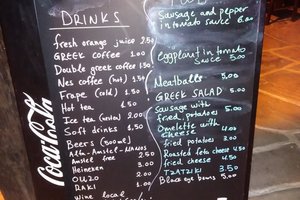 Coca-Cola
DRINKS
fresh orange juice 2.50
GREEK coffee 1.00
Double greek coffee 1.50
Nes coffee (hot) 1.50
Frape (cold) 1.50
Hot tea 1.50
Ice tea 2.00
Soft drinks 1.50
Beers (500ml)
Alfa-Amstel-Mythos 2.50
Amstel free
Heineken 3.00
OUZO 2.00
RAKI
Wine local
Sausage and pepper
in tomato sauce 6.00
Eggplant in tomato
sauce 5.00
Meatballs
GREEK SALAD 5.00
Sausage with
fried potatoes 5.00
Omelette with
cheese 4.00
Fried potatoes 2.00
Roasted feta cheese
fried cheese 4.50
TZATZIKI 3.50
Black eye beans 5.00